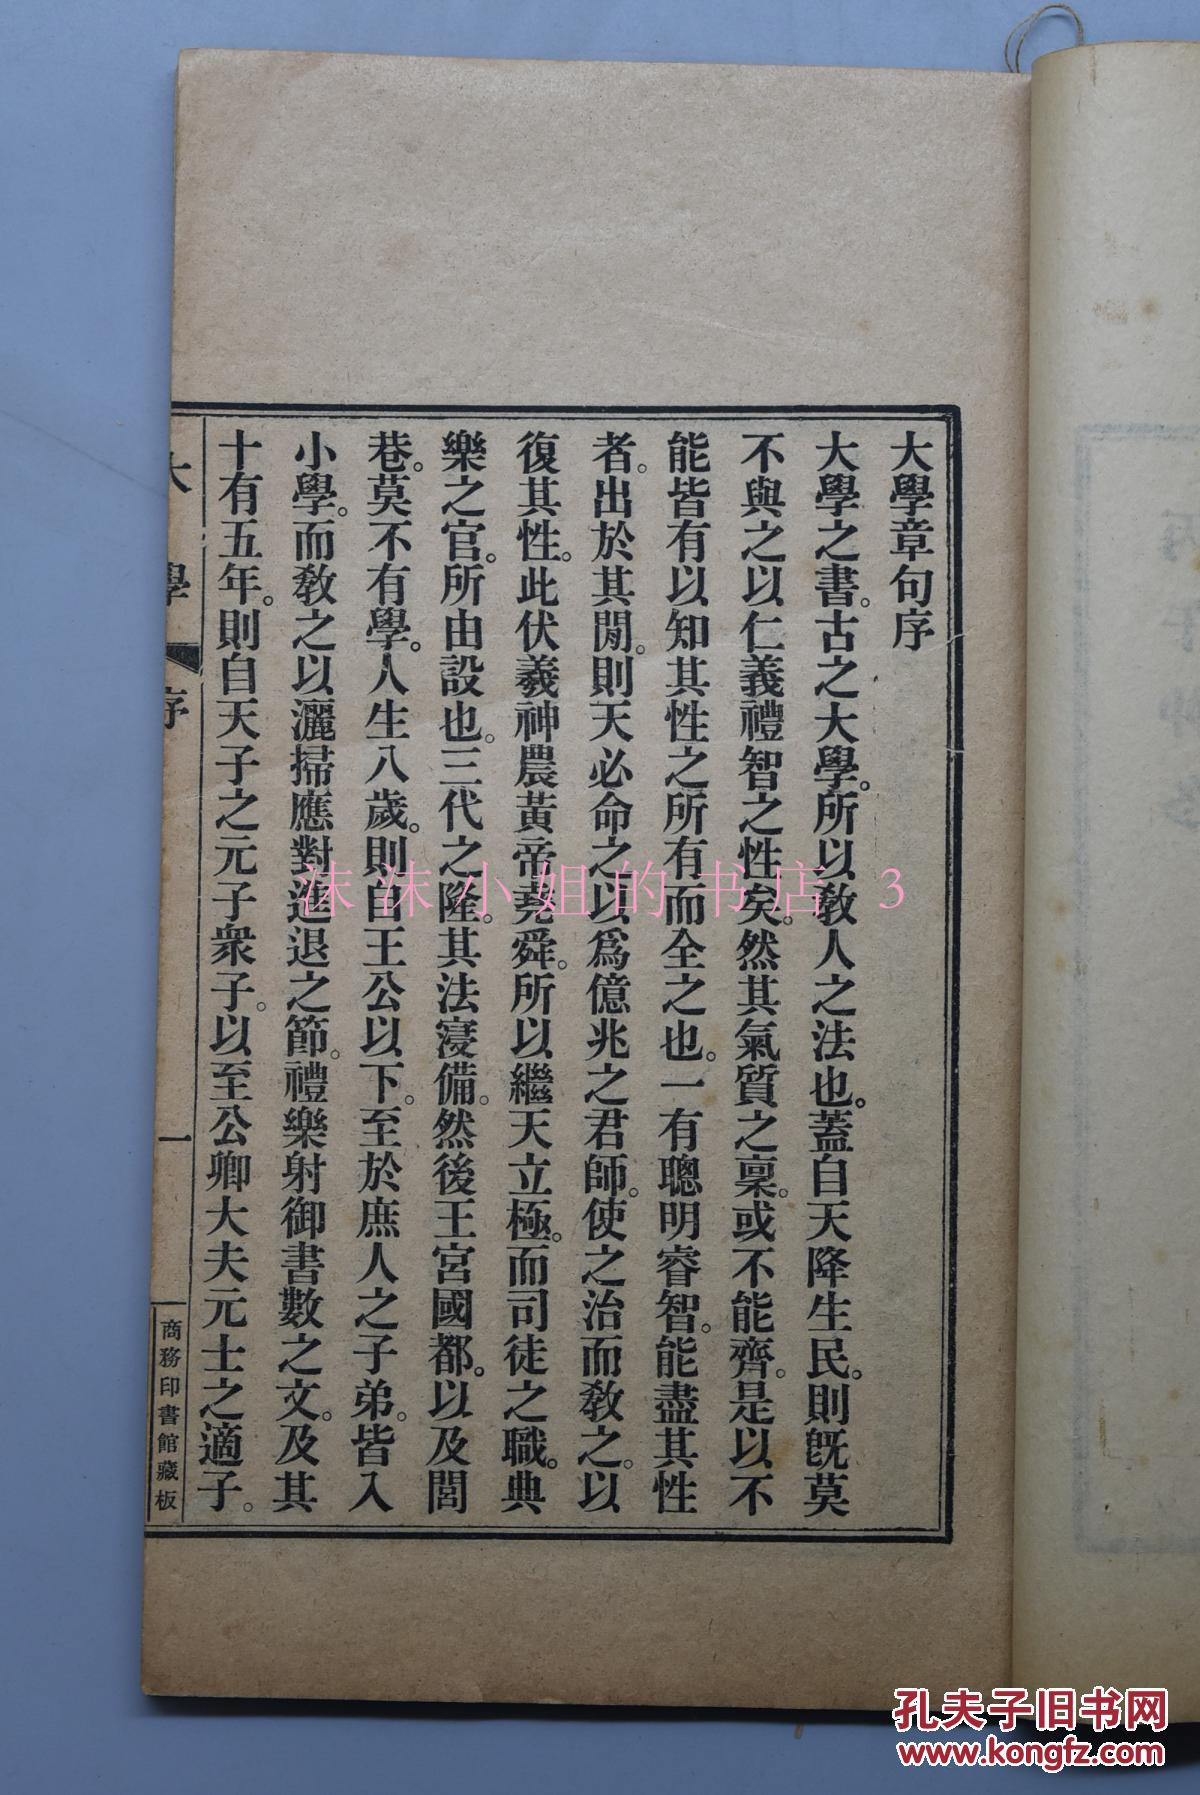 大學章句序
大學之書。古之大學。所以敎人之法也。蓋自天降生民。則旣莫
不與之以仁義禮智之性矣。然其氣質之稟。或不能齊。是以不
能皆有以知其性之所有而全之也。一有聰明睿智。能盡其性
者。出於其閒。則天必命之以爲億兆之君師。使之治而敎之。以
復其性。此伏羲神農黃帝堯舜。所以繼天立極。而司徒之職。典
樂之官。所由設也。三代之隆。其法寖備。然後王宮國都。以及閭
巷。莫不有學。人生八歲。則自王公以下。至於庶人之子弟。皆入
小學。而敎之以灑掃應對進退之節。禮樂射御書數之文。及其
十有五年。則自天子之元子衆子。以至公卿大夫元士之適子。
大學 序 一
商務印書館藏板
沫沫小姐的书店 3
孔夫子旧书网
www.kongfz.com